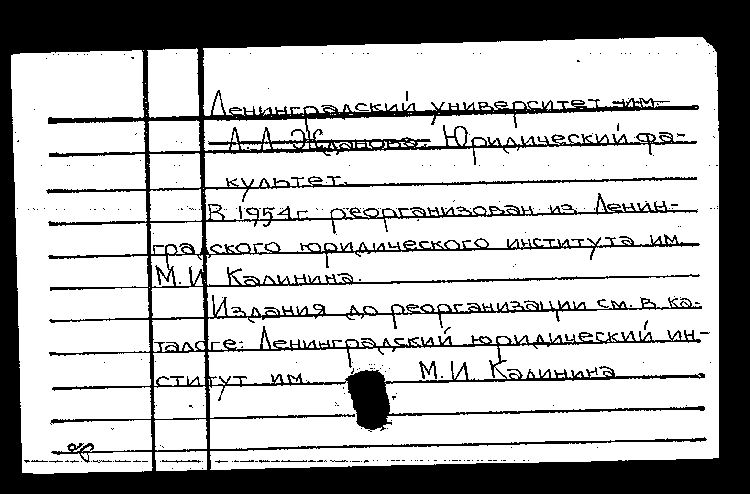 Ленинградский университет им.
А. А. Жданова. Юридический фа-
культет.
В 1954 г. реорганизован из Ленин-
градского юридического института им.
М. И. Калинина.
Издания до реорганизации см. в ка-
талоге: Ленинградский юридический ин-
ститут им. М. И. Калинина